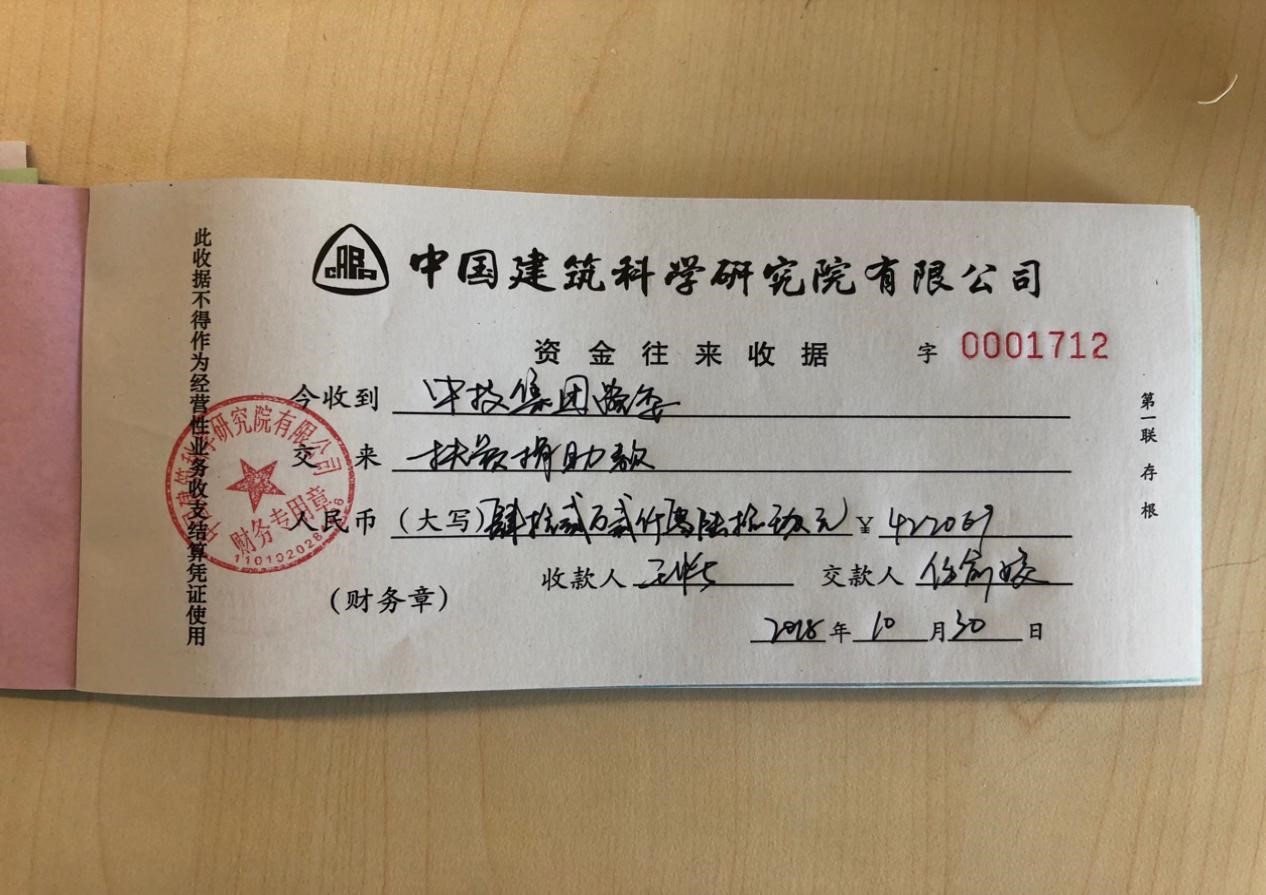 此收据不得作为经营性业务收支结算凭证使用
CABR
中国建筑科学研究院有限公司
资金往来收据 字 0001712
今收到 中技集团党委
交来 扶贫捐助款
人民币（大写）肆拾贰万贰仟零陆拾玖元 ¥ 422069
收款人 交款人
（财务章）
2018年10月30日
第一联存根
中国建筑科学研究院有限公司
财务专用章